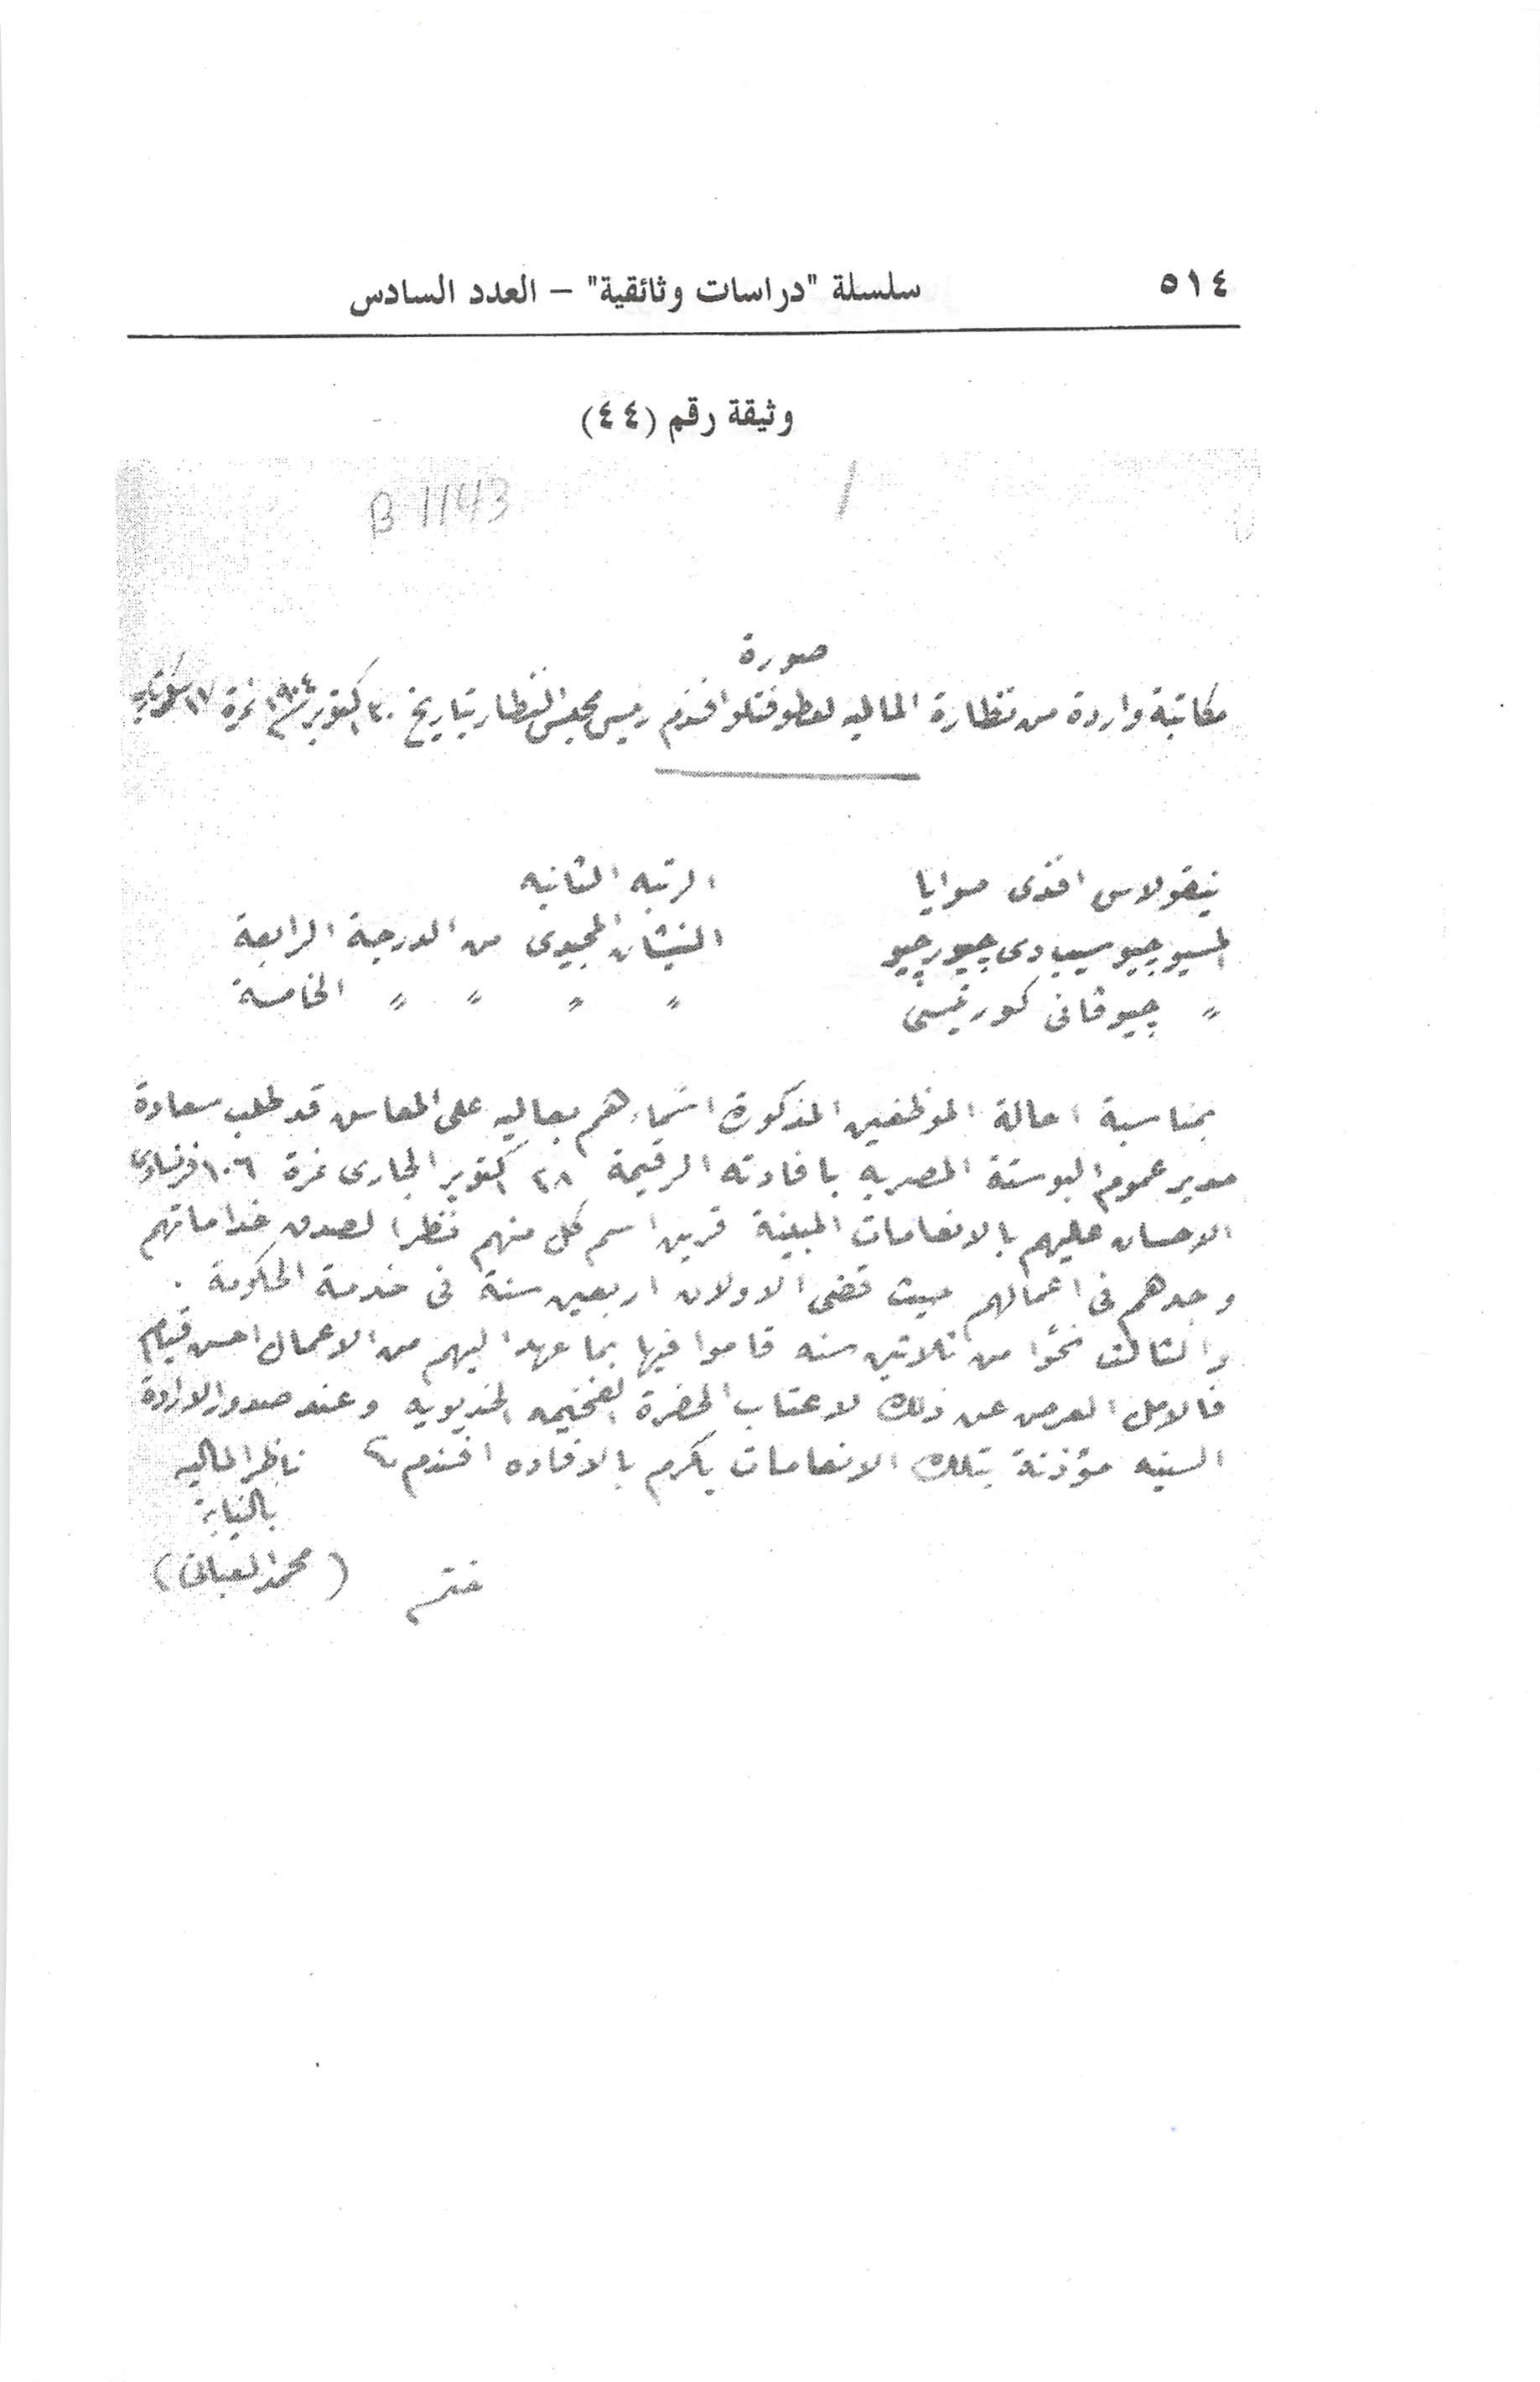 ٥١٤ سلسلة "دراسات وثائقية" – العدد السادس
وثيقة رقم (٤٤)
B 1143 /
صورة
مكاتبة واردة من نظارة الماليه لعطوفتلو افندم رئيس مجلس النظار بتاريخ ٣٠ اكتوبر سنة ١٩٠٤ نمرة ١٧
نيقولاس افندى صوايا الرتبه الثانيه
المسيو جيوسيب دى جيورجيو النيشان المجيدى من الدرجة الرابعة
〃 چيوڤانى كورتيسى 〃 〃 〃 〃 الخامسة
بمناسبة احالة الموظفين المذكورة اسماءهم بعاليه على المعاش قد طلب سعادة
مدير عموم البوستة المصريه بافادته الرقيمة ٢٨ اكتوبر الجارى نمرة ١٠٦ فرنساوى
الاحسان عليهم بالانعامات المبينة قرين اسم كل منهم نظرا لصدق خداماتهم
وجدهم فى اعمالهم حيث قضى الاولان اربعين سنة فى خدمة الحكومة .
والثالث نحوًا من ثلاثين سنه قاموا فيها بما عهد اليهم من الاعمال احسن قيام
فالامل العرض عن ذلك لاعتاب الحضرة الفخيمه الخديويه وعند صدور الارادة
السنيه مؤذنة بتلك الانعامات يكرم بالافاده افندم ناظر الماليه
بالنيابة
ختم (محمد العبانى)